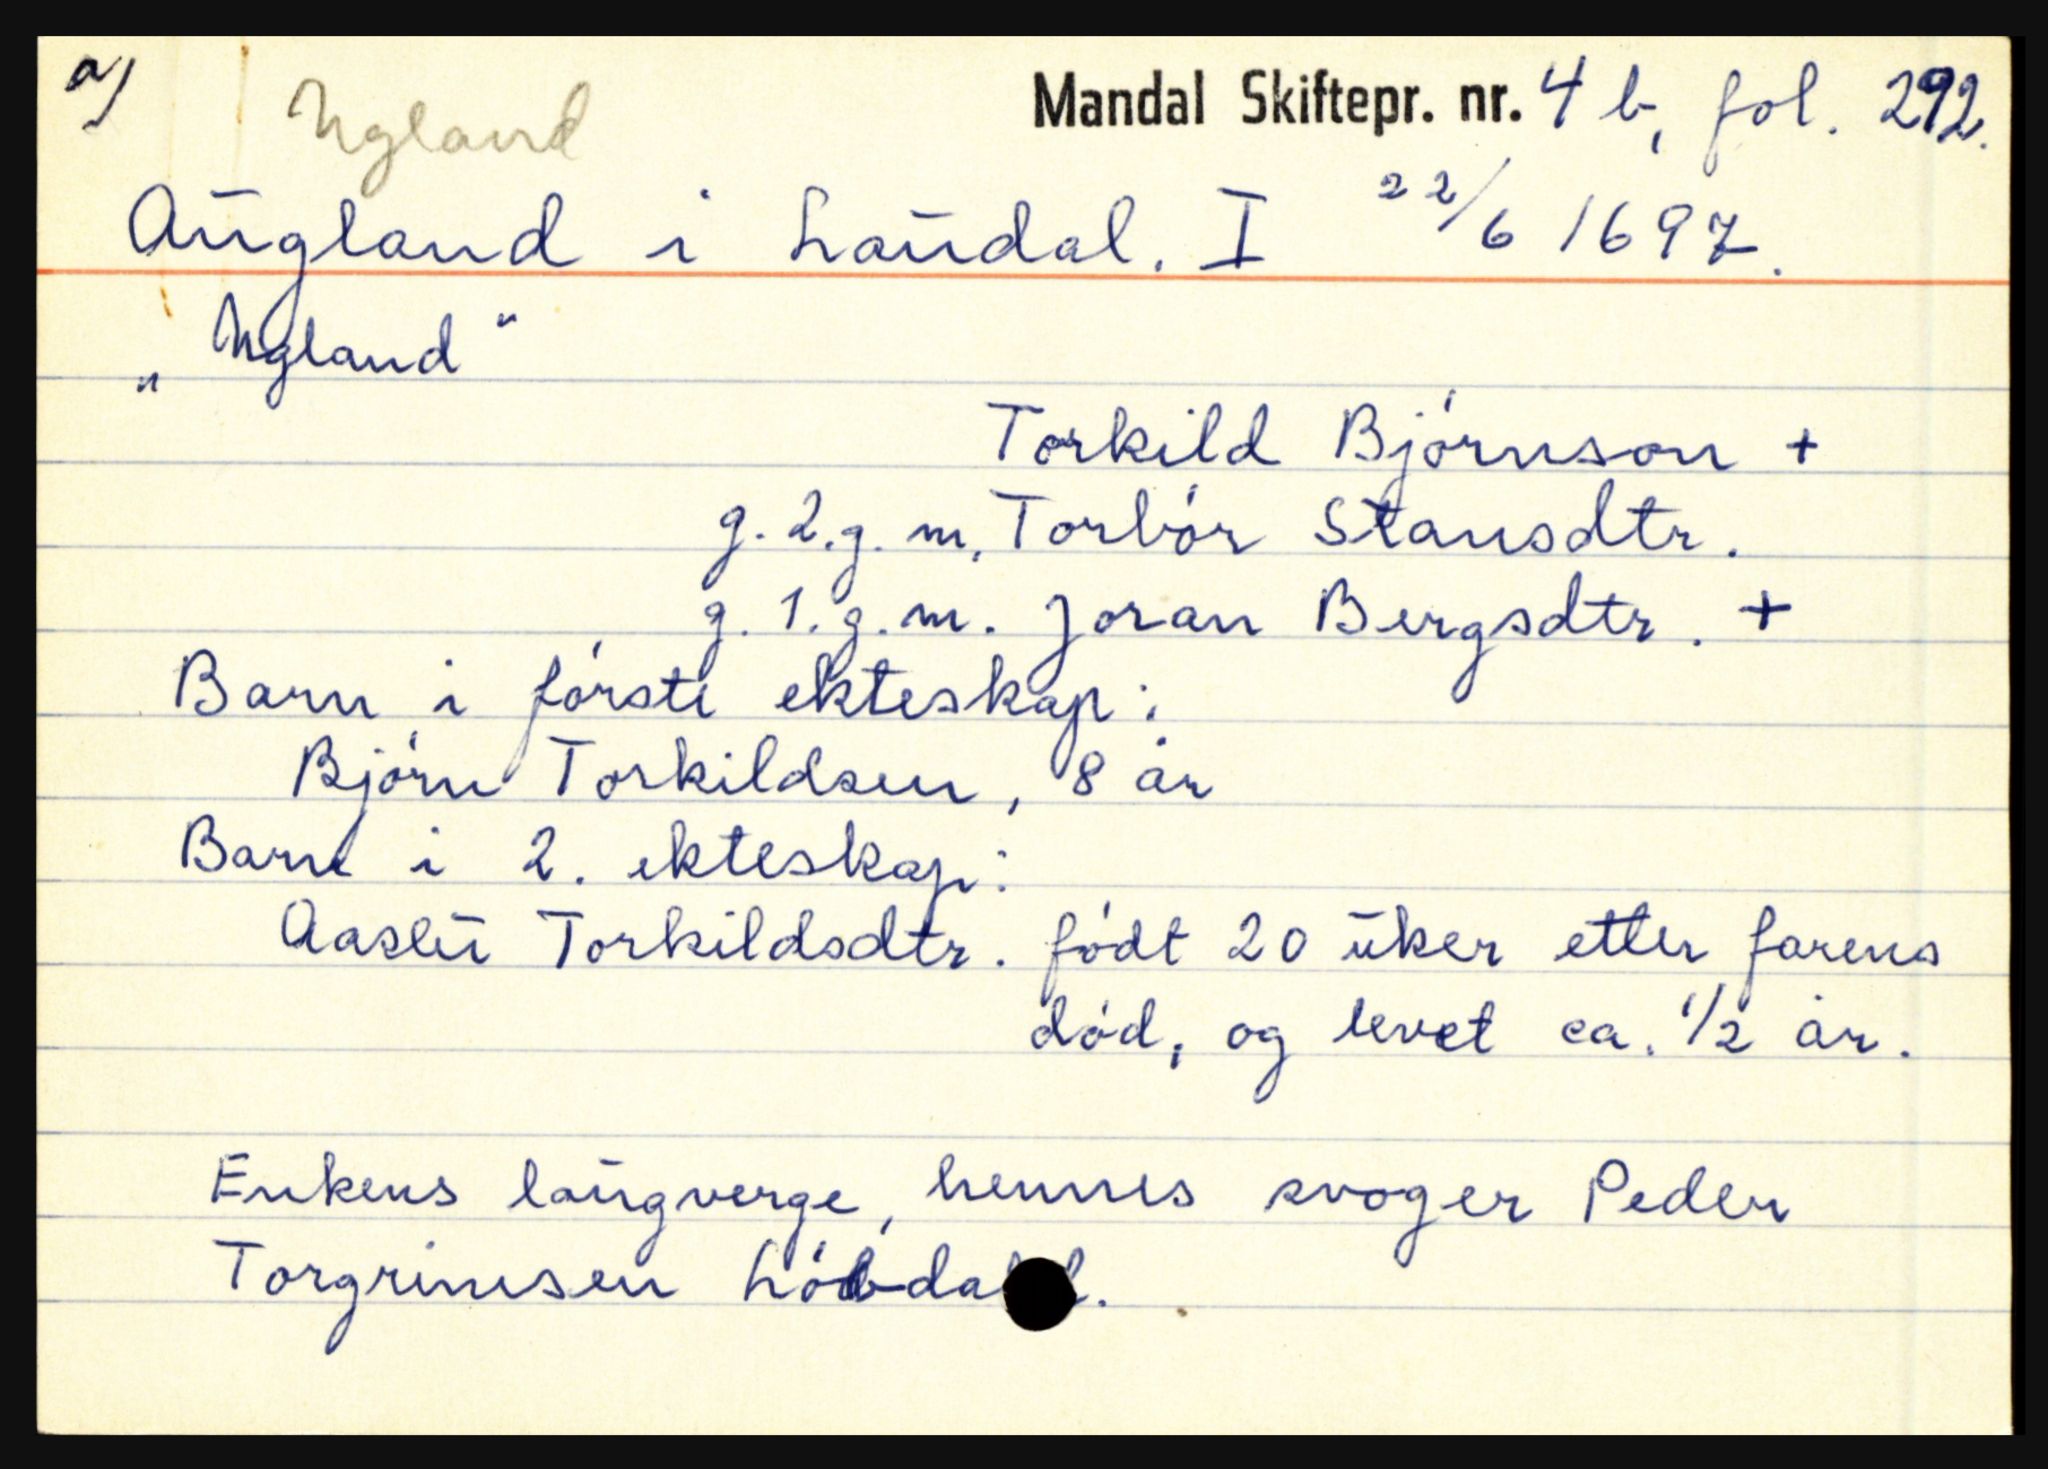 a)
Ugland
Mandal Skiftepr. nr. 4 b, fol. 292.
Augland i Laudal. I 22/6 1697.
„Ugland“
Torkild Björnson +
g. 2. g. m. Torbör Stausdtr.
g. 1. g. m. Joran Bergsdtr. +
Barn i förste ekteskap:
Björn Torkildsen, 8 år
Barn i 2. ekteskap:
Aaslu Torkildsdtr. födt 20 uker etter farens
död, og levet ca. 1/2 år.
Enkens laugverge, hennes svoger Peder
Torgrimsen